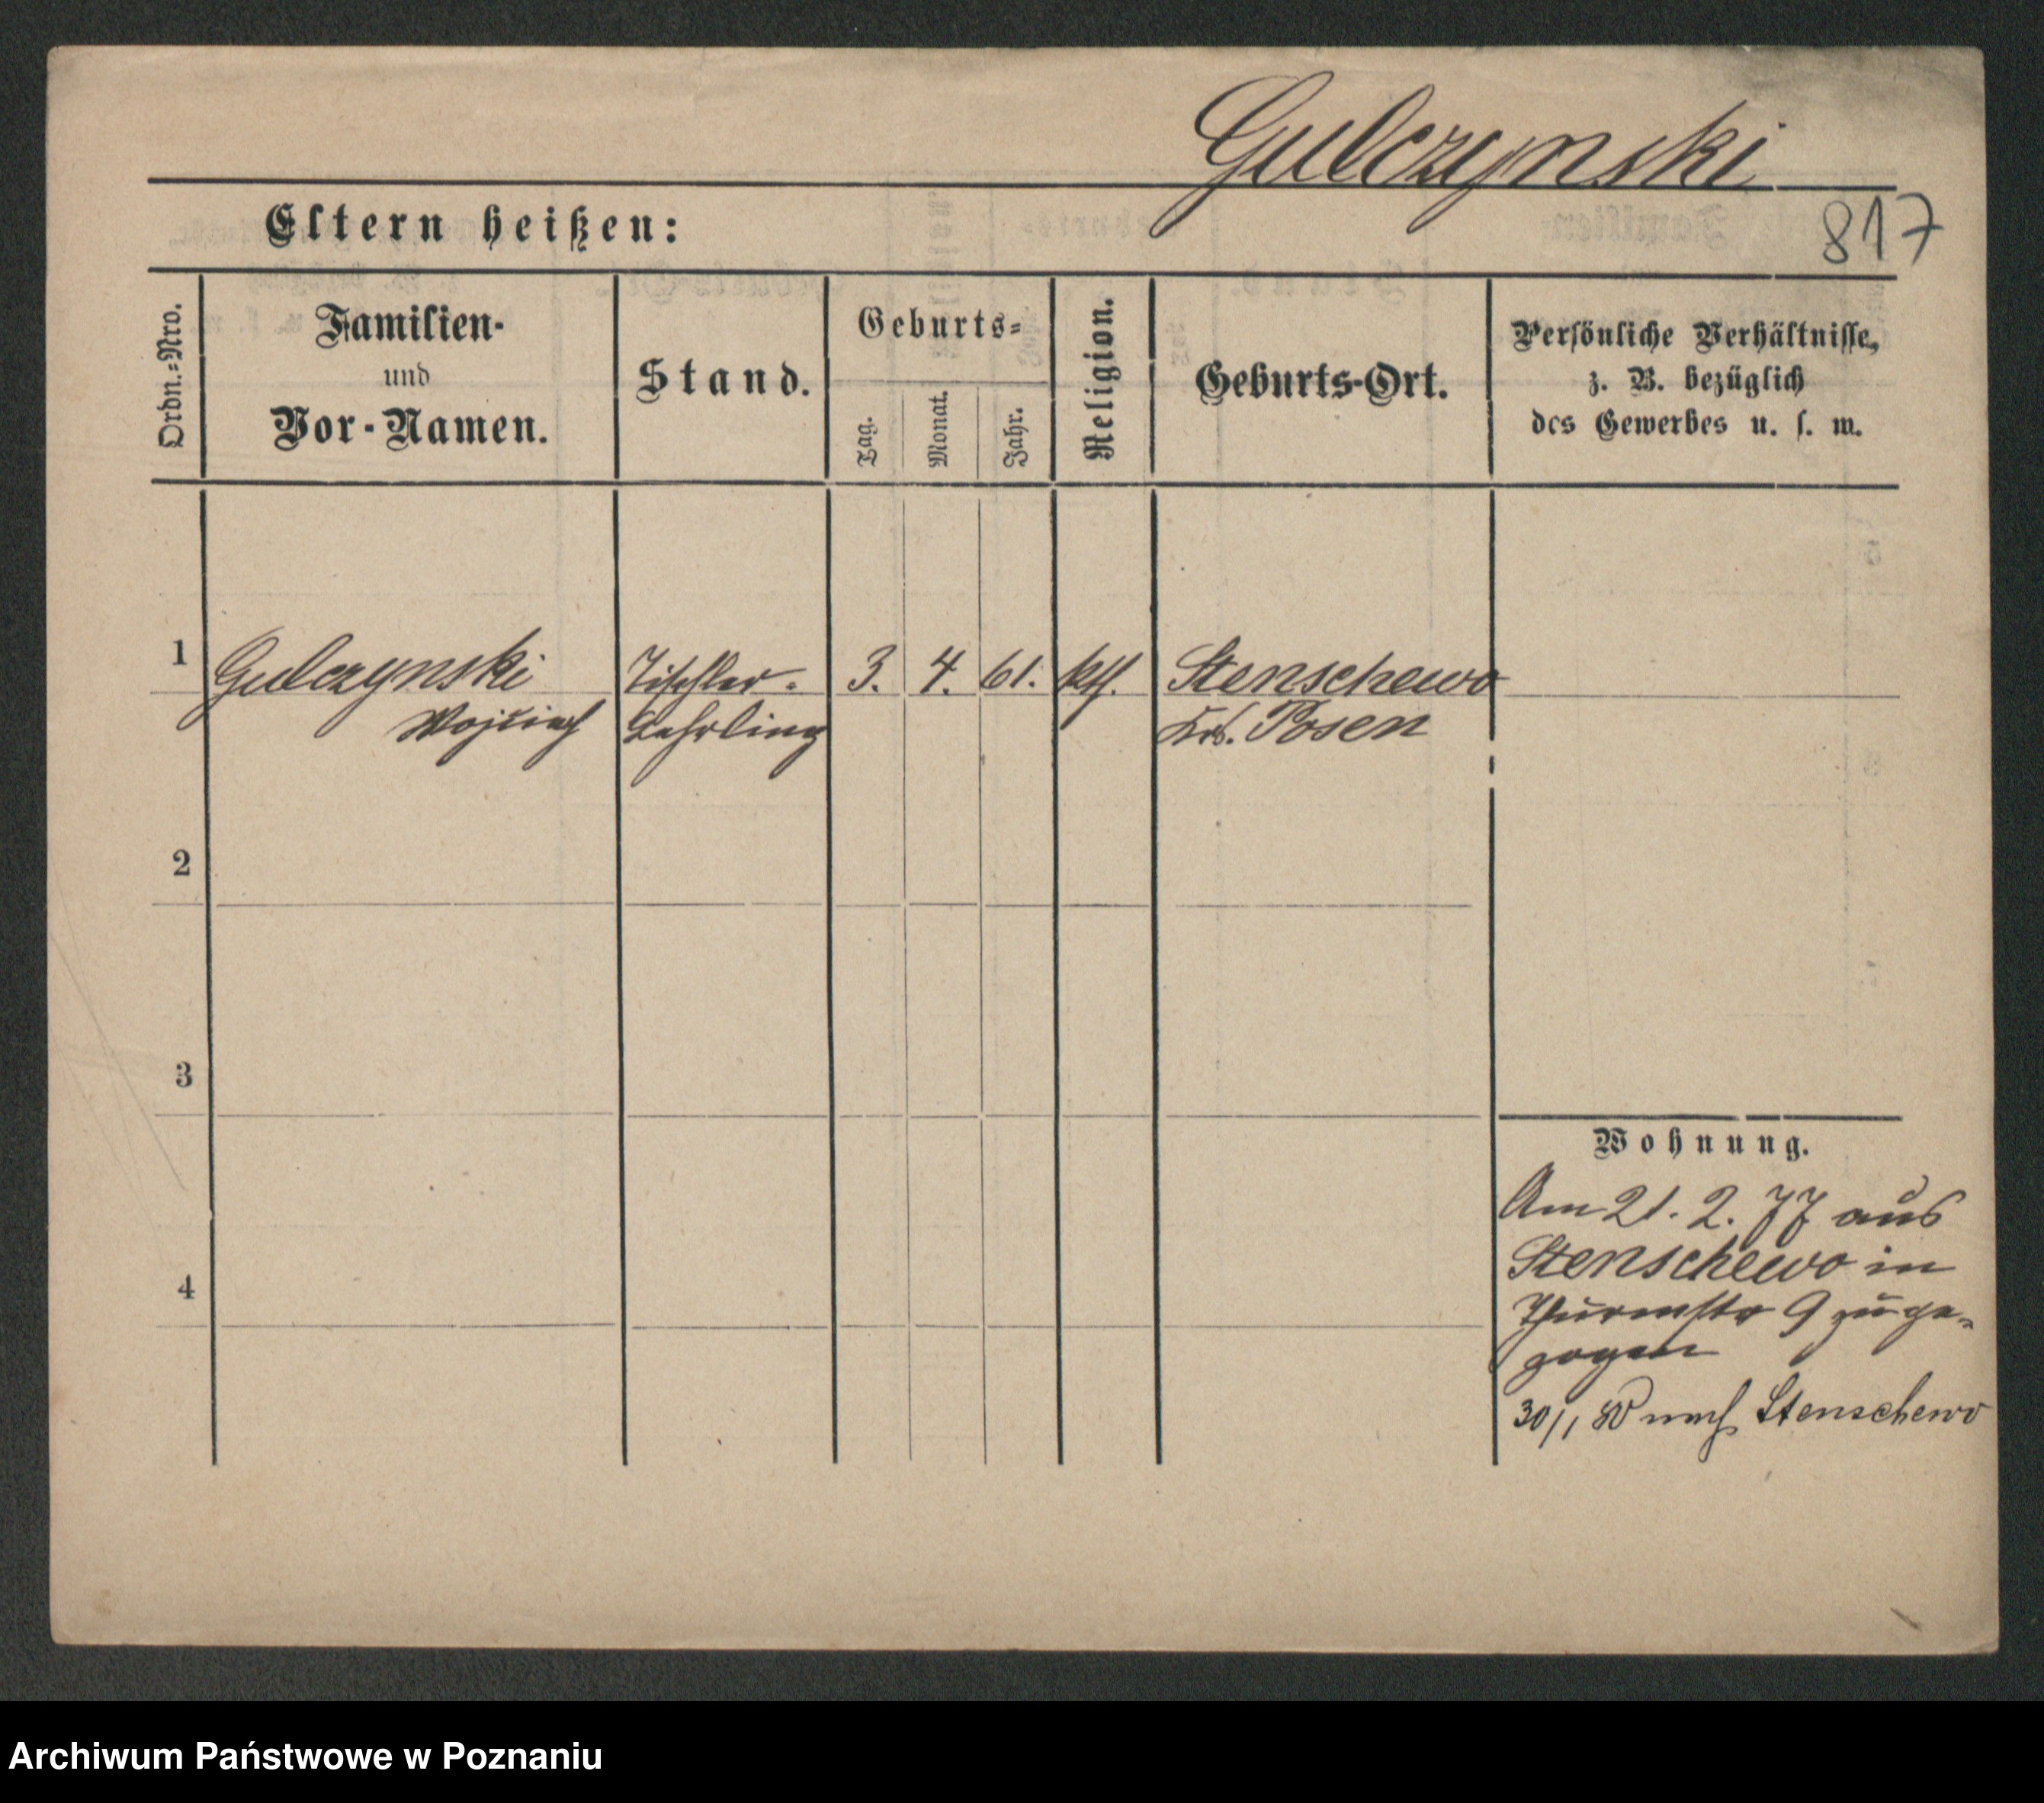 Gulczynski
Eltern heißen:
817
Ordn.-Nro.
Familien-
und
Vor-Namen.
Stand.
Geburts-
Tag.
Monat.
Jahr.
Religion.
Geburts-Ort.
Persönliche Verhältnisse,
z. B. bezüglich
des Gewerbes u. s. w.
1
Gulczynski
Wojciech
Tischler-
Lehrling
3.
4.
61.
kth.
Stenschewo
Krs. Posen
2
3
4
Wohnung.
Am 21. 2. 77 aus
Stenschewo in
Thurmstr 9 zuge-
zogen
30/1 80 nach Stenschewo
Archiwum Państwowe w Poznaniu